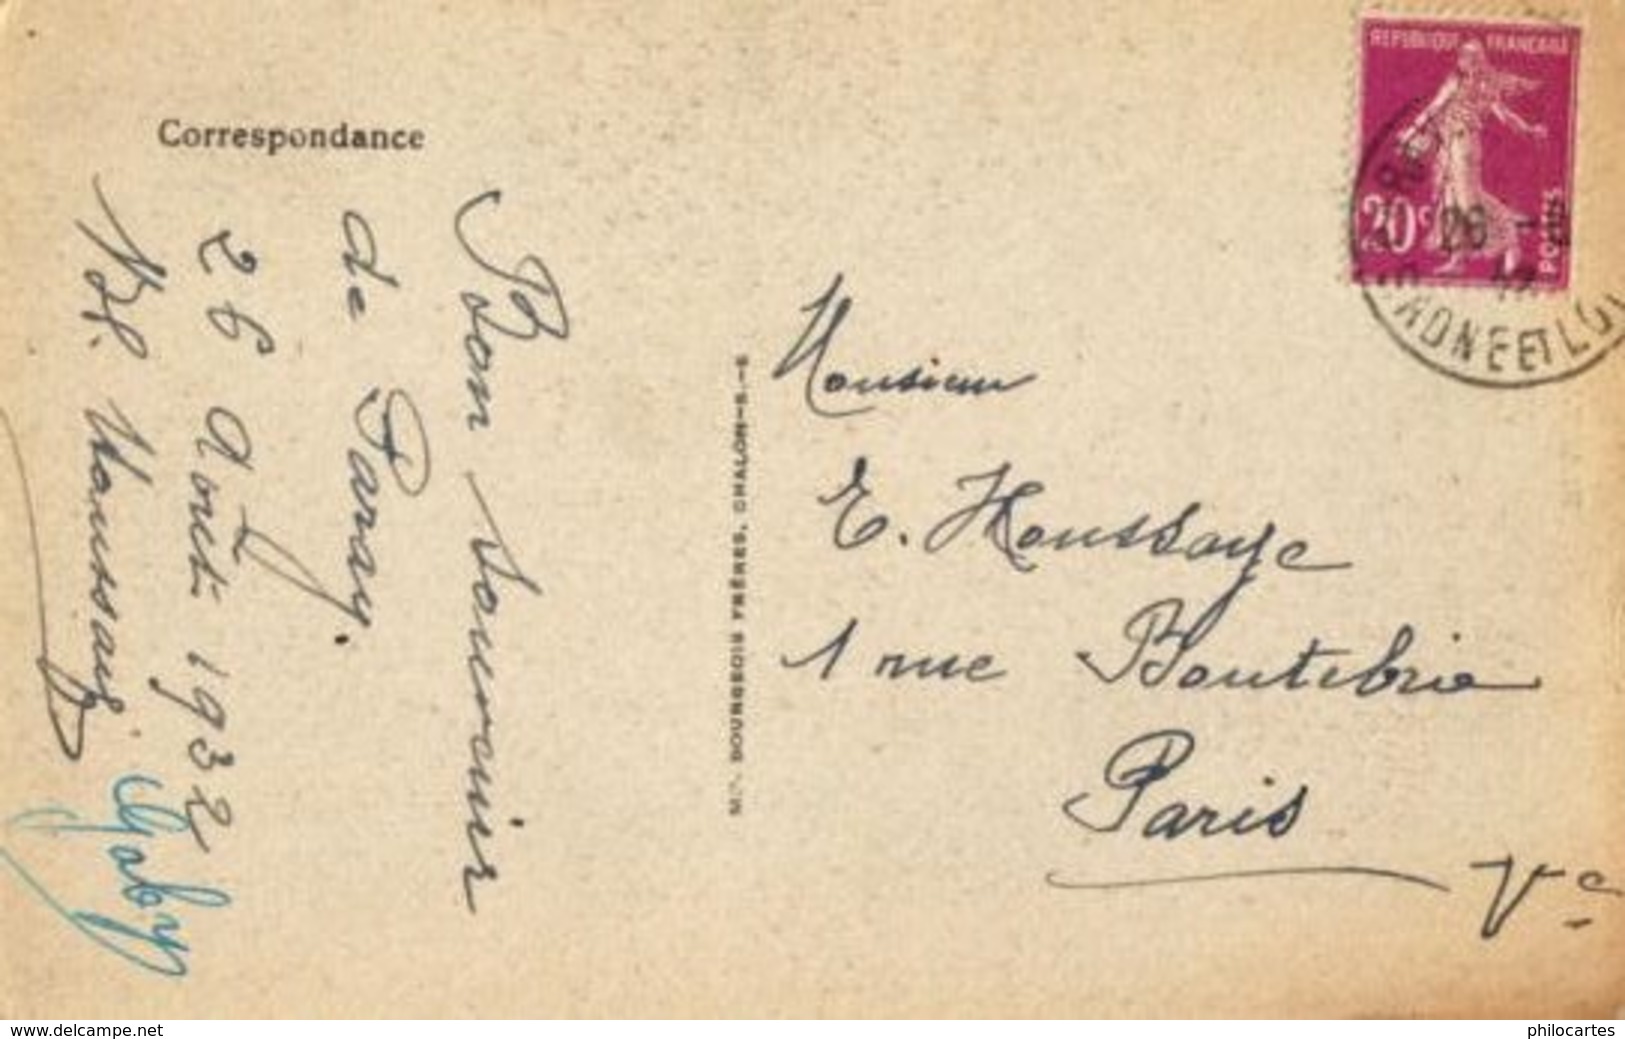 Correspondance
Bon souvenir
de Paray.
26 Août 1932
Gaby
Mon. BOURGEOIS FRÈRES, CHALON-S.-S
REPUBLIQUE FRANCAISE
20c
POSTES
26
Monsieur
E. Houssaye
1 rue Boutebrie
Paris
Ve
www.delcampe.net
philocartes